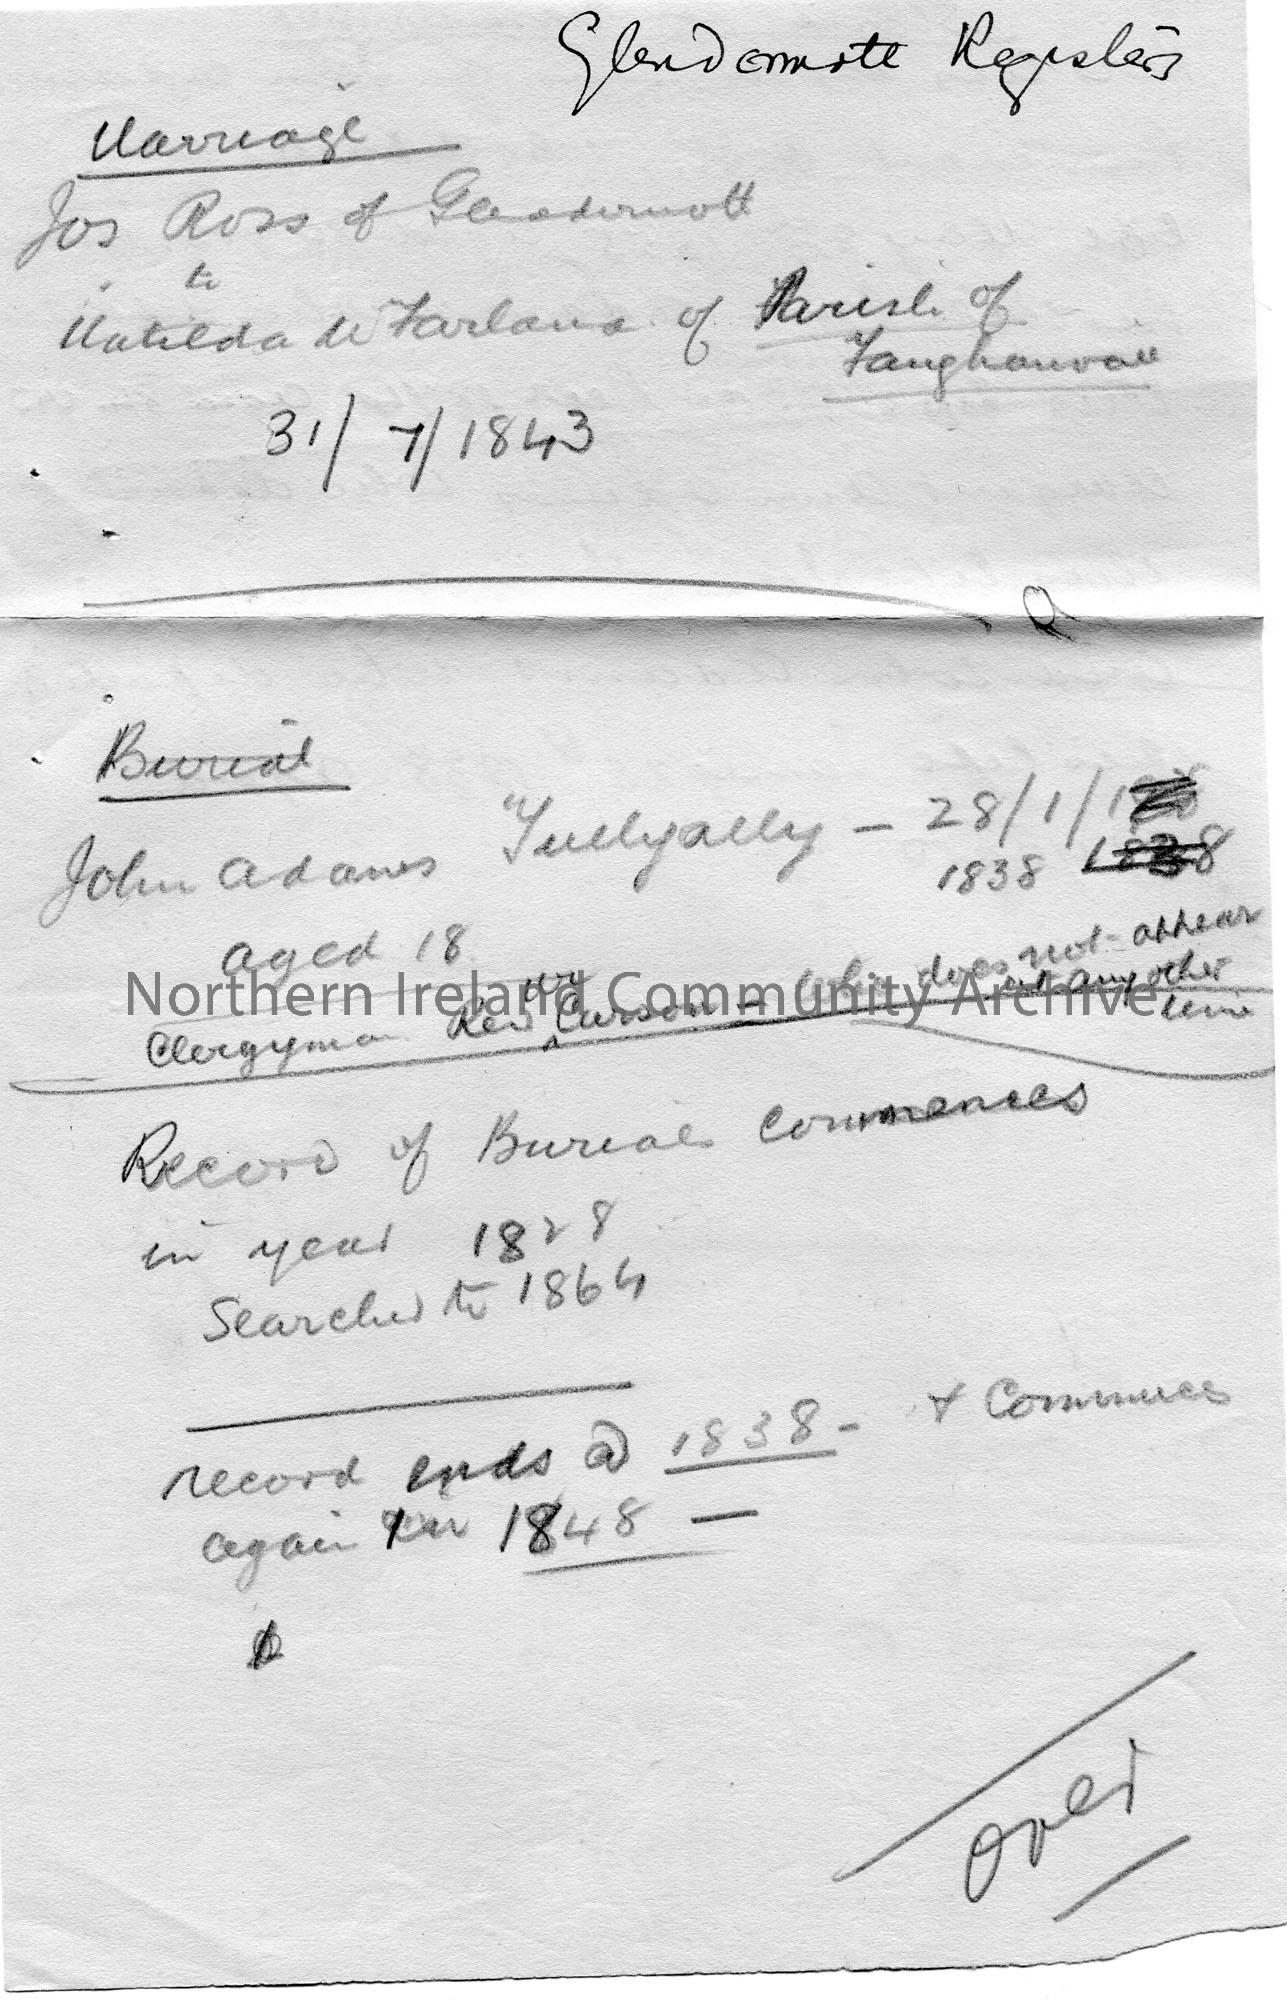 Glendermott Registers
Marriage
Jos Ross of Glendermott
to
Matilda McFarland of Parish of
Faughanvale
31/7/1843
Burial
John Adams Tullyally – 28/1/
1838
aged 18
Clergyman Rev Wm Carson – Who does not appear
at any other
time
Northern Ireland Community Archive
Record of Burials Commences
in year 1828
Searched to 1864
record ends @ 1838 – & Commences
again in 1848 —
over